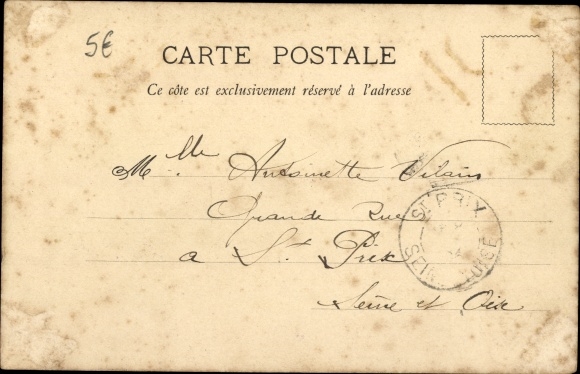 5€
CARTE POSTALE
Ce côte est exclusivement réservé à l'adresse
Mlle Antoinette Vilain
Grande Rue
à St Prix
Seine et Oise
ST PRIX
SEINE